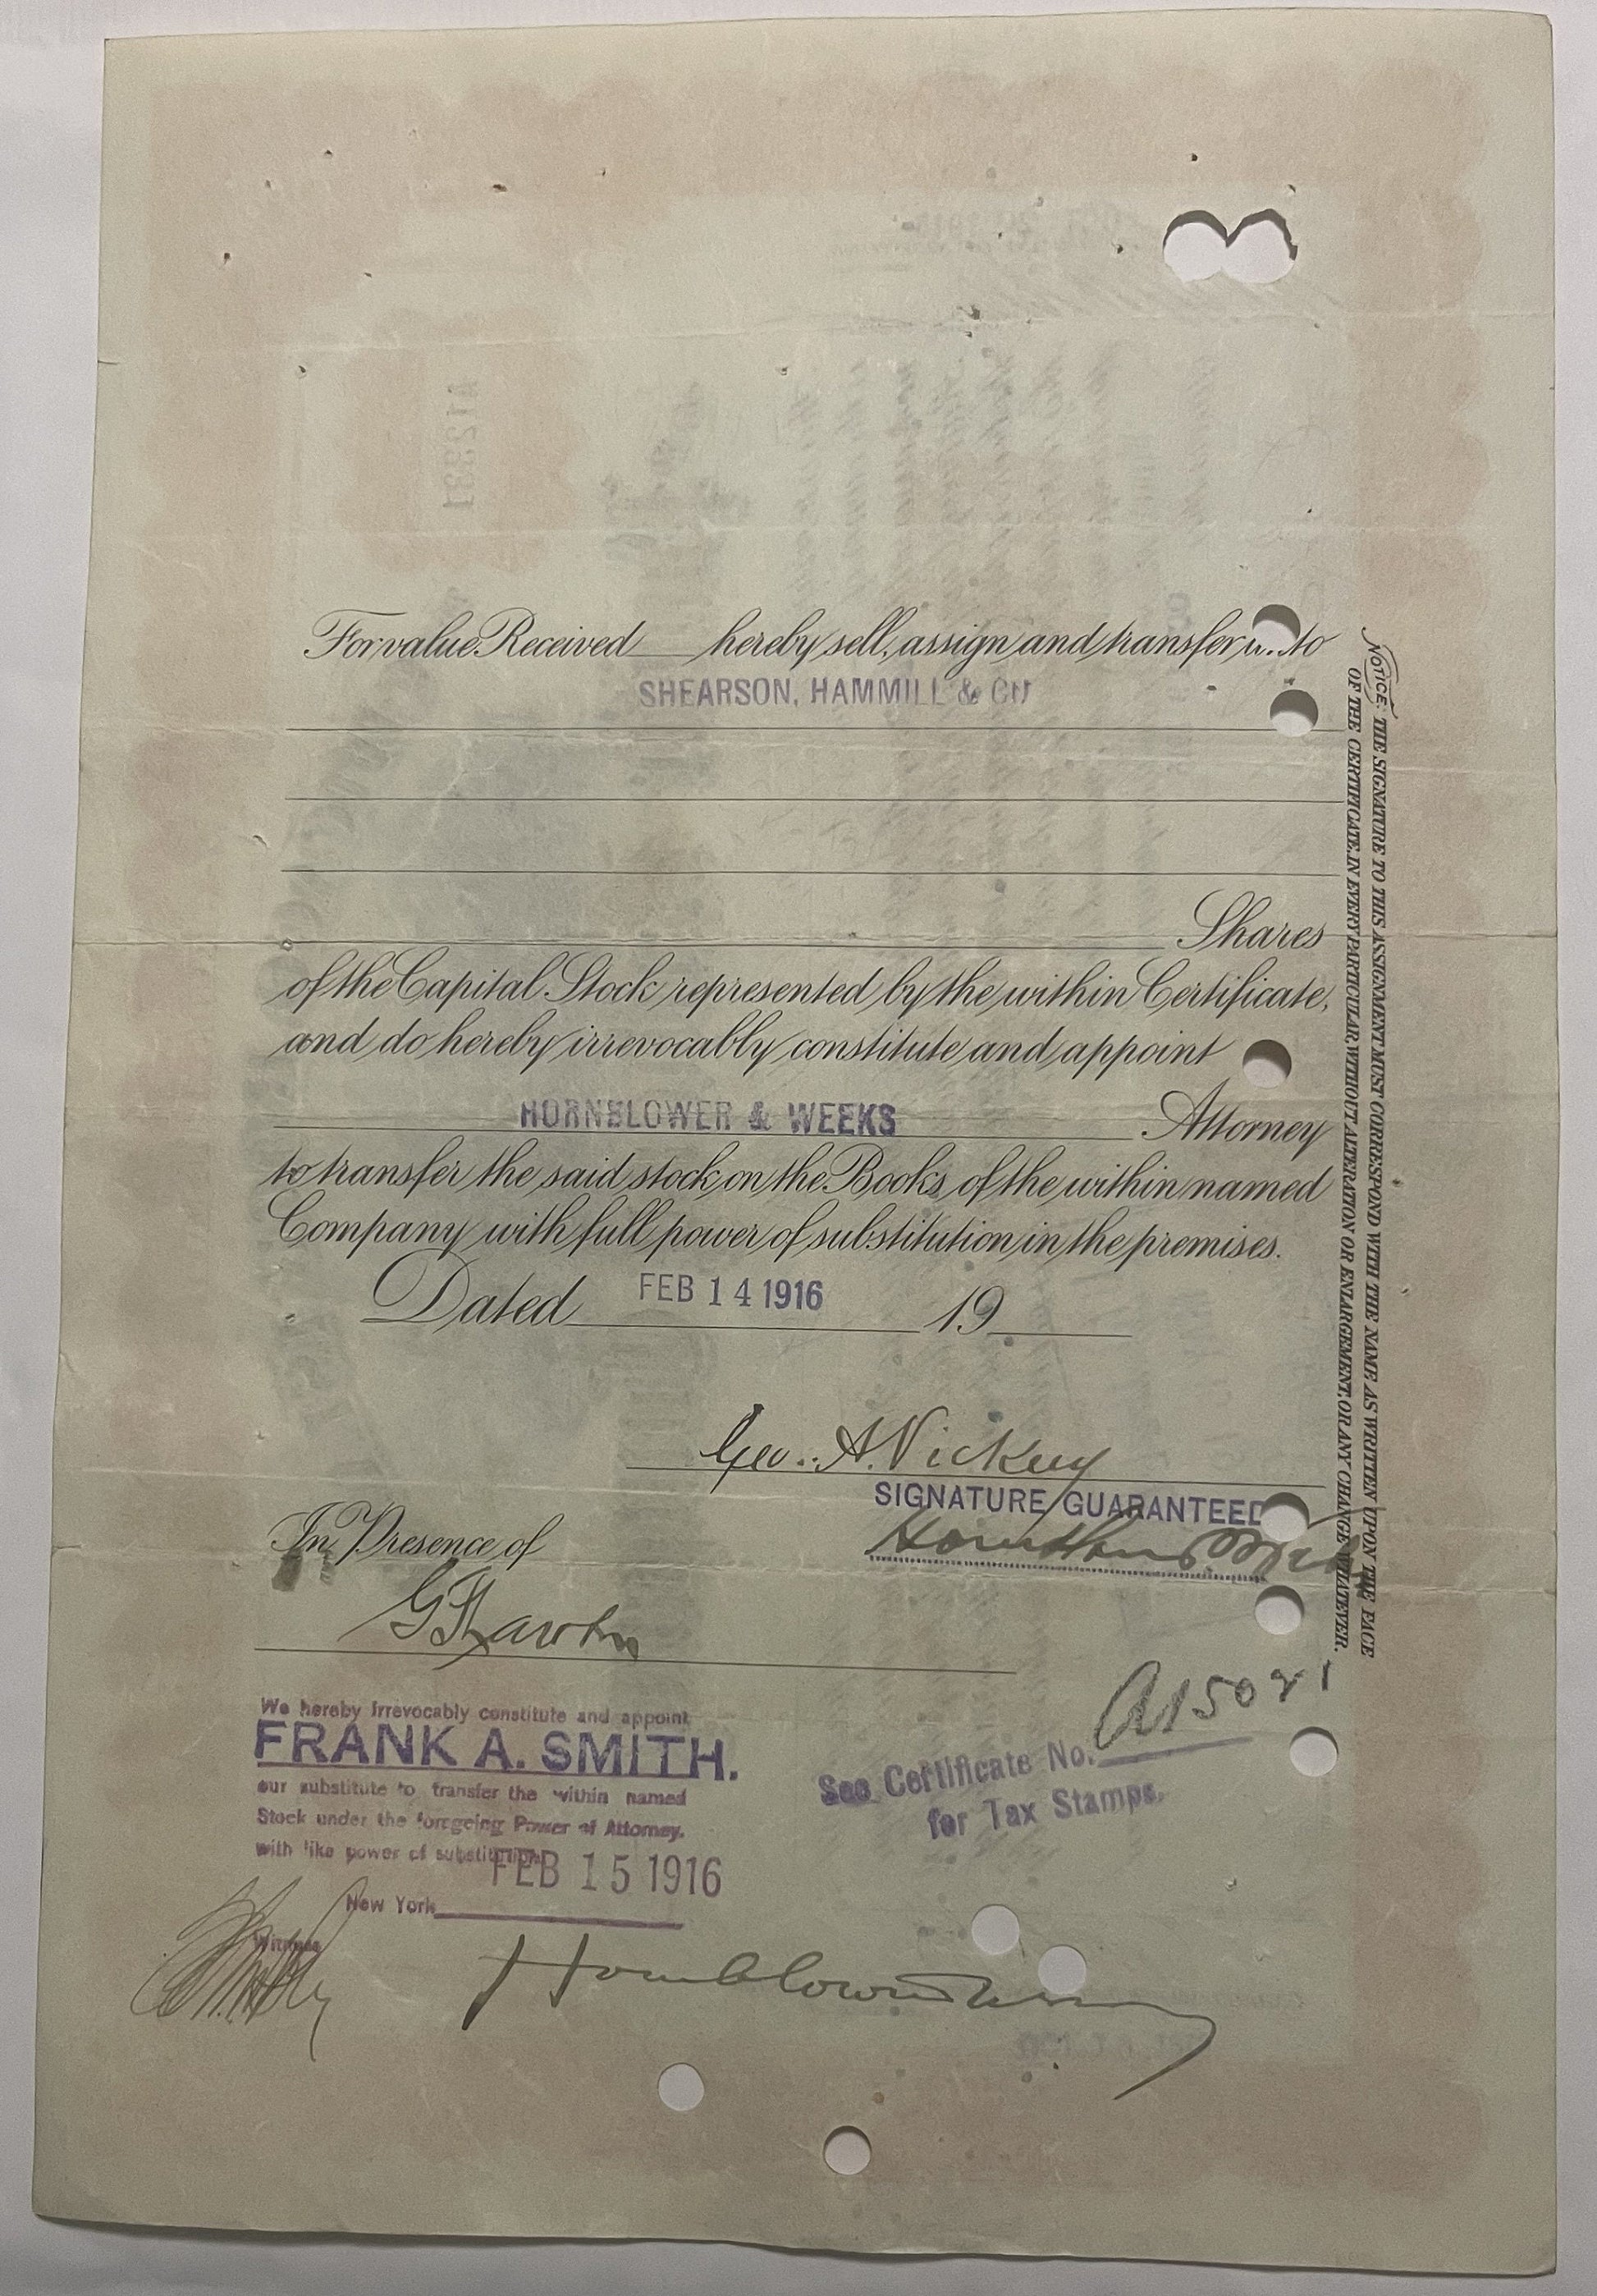 For value Received hereby sell, assign and transfer to
SHEARSON, HAMMILL & CO
Shares
of the Capital Stock represented by the within Certificate,
and do hereby irrevocably constitute and appoint
HORNBLOWER & WEEKS Attorney
to transfer the said stock on the Books of the within named
Company with full power of substitution in the premises.
Dated FEB 14 1916 19
Geo. A. Vickery
SIGNATURE GUARANTEED
In Presence of
We hereby irrevocably constitute and appoint
FRANK A. SMITH.
our substitute to transfer the within named
Stock under the foregoing Power of Attorney.
with like power of substitution
FEB 15 1916
New York
Witness
A15021
See Certificate No.
for Tax Stamps.
Hornblower & Weeks
NOTICE: THE SIGNATURE TO THIS ASSIGNMENT MUST CORRESPOND WITH THE NAME AS WRITTEN UPON THE FACE
OF THE CERTIFICATE, IN EVERY PARTICULAR, WITHOUT ALTERATION OR ENLARGEMENT, OR ANY CHANGE WHATEVER.